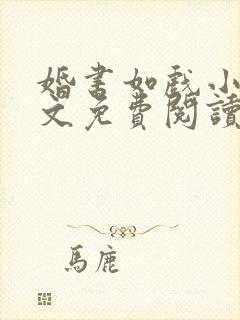 婚书如戏小
文免費閱讀
馬鹿